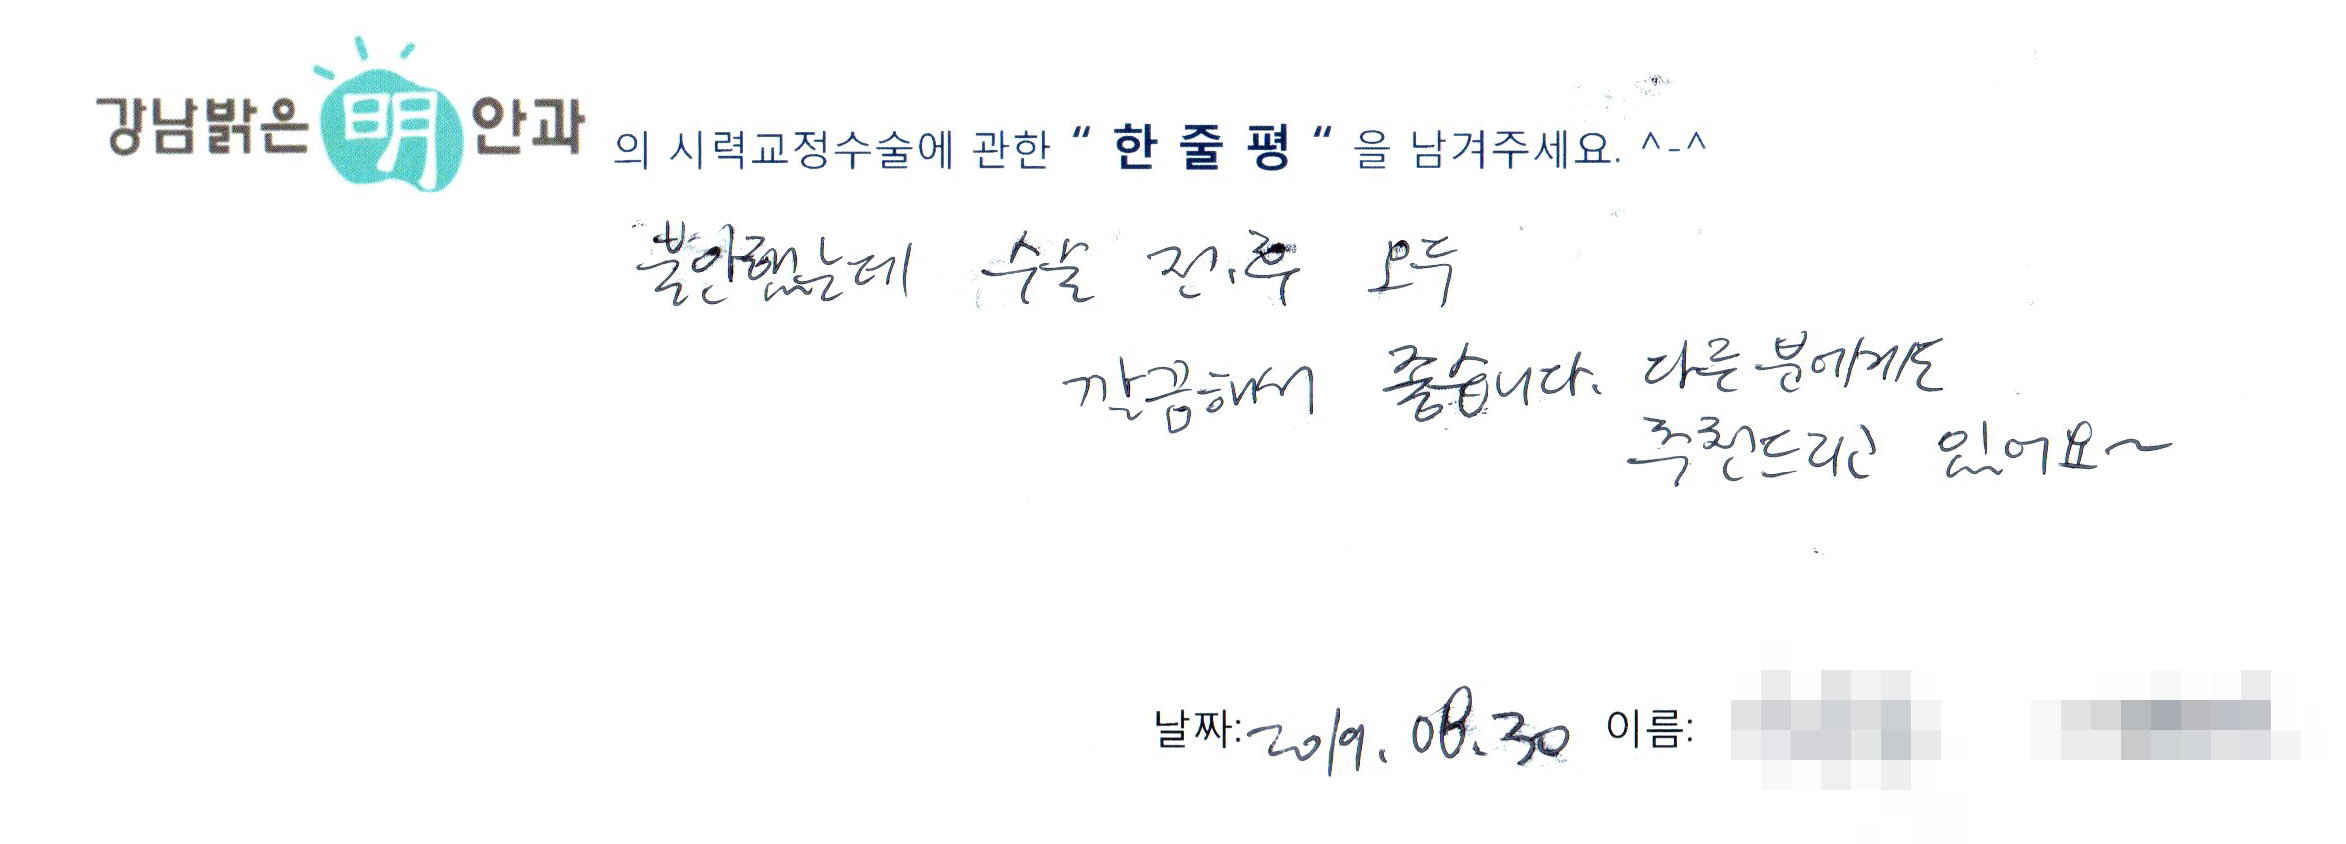 강남밝은 明 안과 의 시력교정수술에 관한 “ 한 줄 평 “ 을 남겨주세요. ^-^
불안했는데 수술 전.후 모두
깔끔해서 좋습니다. 다른분에게도
추천드리고 있어요~
날짜: 2019. 08. 30 이름: